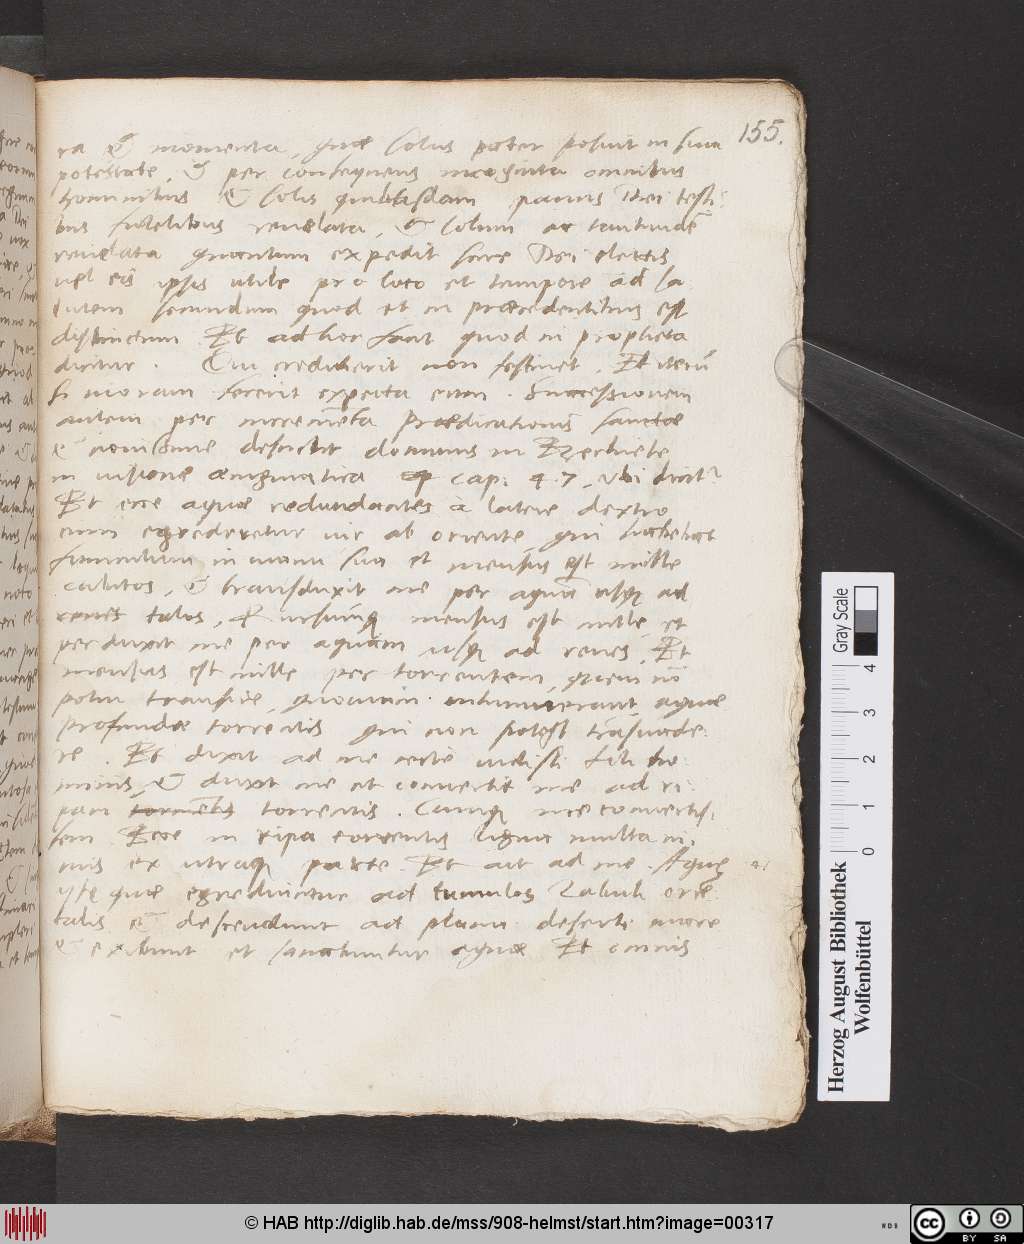 155.
ra & momenta, quæ solus pater posuit in sua
potestate, & per consequens incognita omnibus
hominibus & solis quibusdam parvis Dei testi:
bus fidelibus revelata, & solum ac tantundē
revelata quantum expedit scire Dei electis
vel eis ipsis utile pro loco et tempore ad sa:
lutem secundum quod et in præcedentibus est
distinctum. Et ad hoc facit quod in propheta
dicitur. Qui crediderit non festinet. Et iterū
Si moram fecerit expecta eum. Successionem
autem per incremēta prædicationis sanctæ
& novissime describit dominus in Ezechiele
in visione ænigmatica cap: 47, ubi dicit
Et ecce aquæ redundantes à latere dextro
cum egrederetur vir ab oriente qui habebat
funiculum in manu sua et mensus est mille
cubitos, & transduxit me per aquā usq; ad
renes talos, & rursumq; mensus est mille, et
perduxit me per aquam usq; ad renes, Et
mensus est mille per torrentem, quem nō
potui transire, quoniam intumuerant aquæ
profundæ torrentis qui non potest trāsvade:
re. Et dixit ad me certe vidisti fili ho:
minis, & duxit me et convertit me ad ri:
pam torrentis torrentis. Cumq; me convertis:
sem Ecce in ripa torrentis ligna multa ni:
mis ex utraq; parte. Et ait ad me. Aquę
istę quæ egrediuntur ad tumulos Zabuli oriē
talis & descendunt ad plana deserti mare
& exibunt et sanabuntur aquæ Et omnis
Herzog August Bibliothek
Wolfenbüttel
0 1 2 3 4
Gray Scale
© HAB http://diglib.hab.de/mss/908-helmst/start.htm?image=00317
WDB
cc BY SA